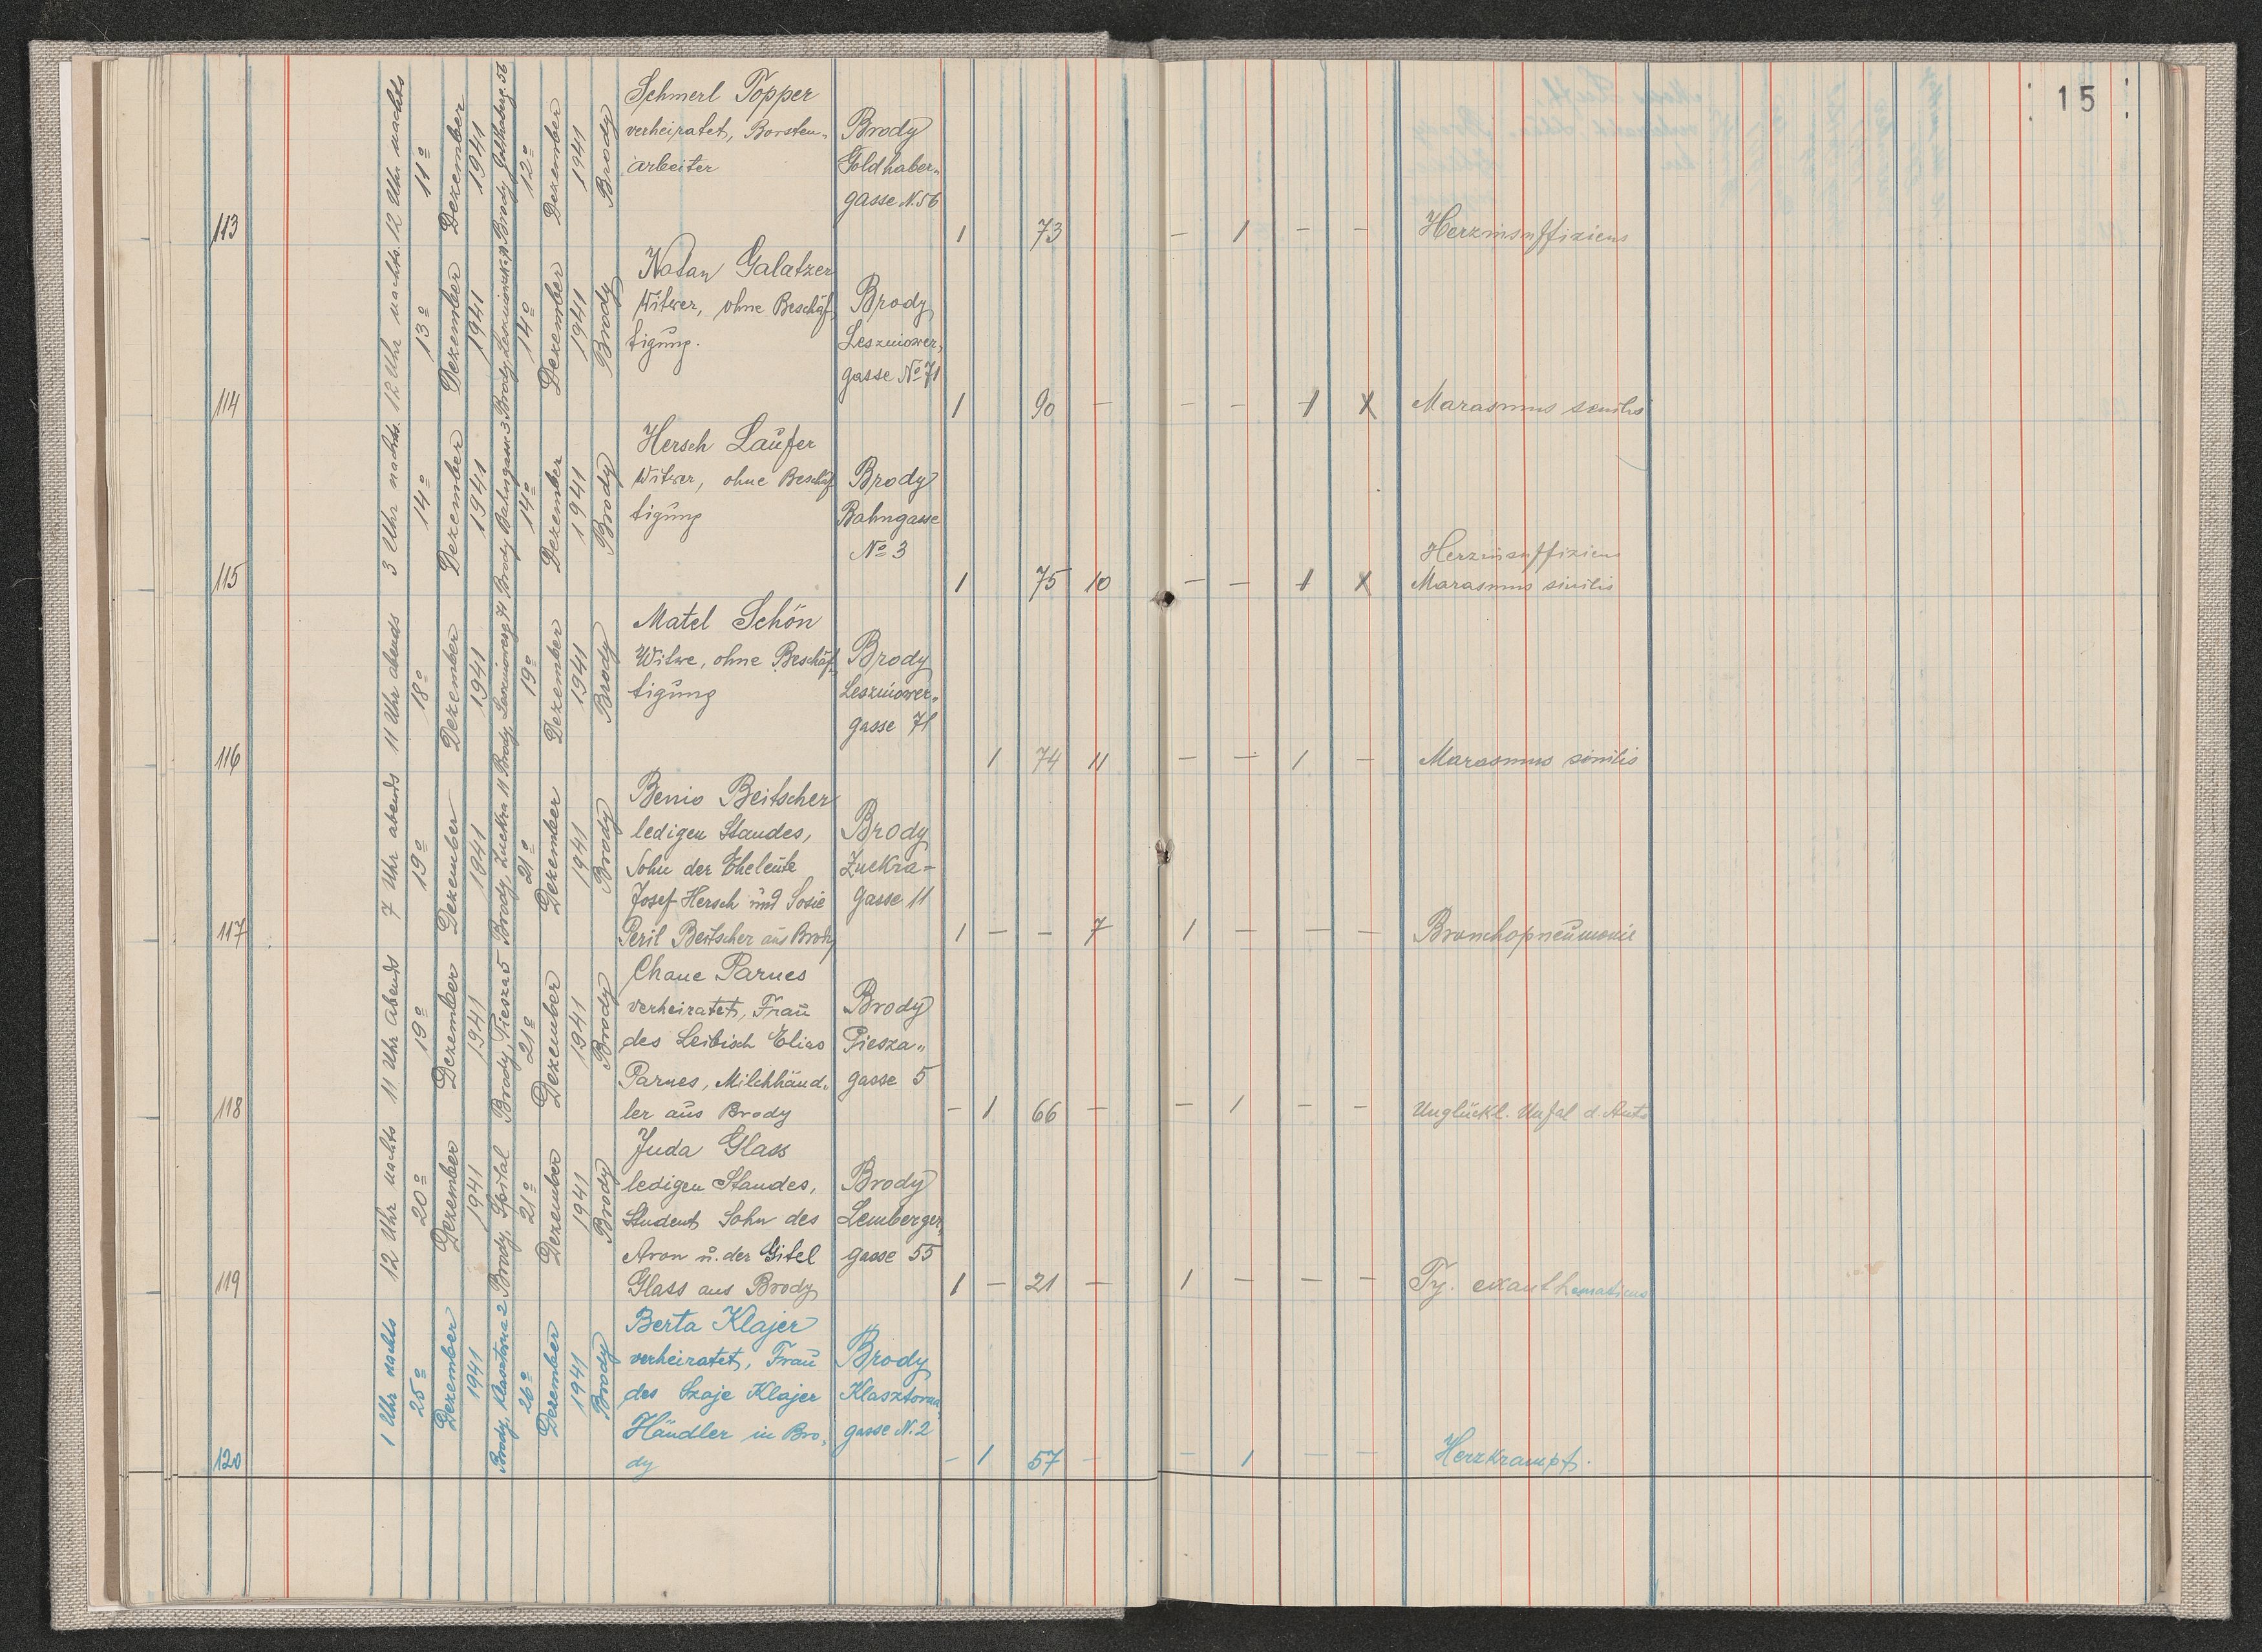 15
113
12 Uhr nachts
11º
Dezember
1941
Brody
12º
Dezember
1941
Brody
Schmerl Topper
verheiratet, Borsten„
arbeiter
Brody
Goldhaber„
gasse N. 56
1 73 - 1 - -
Herzinsuffiziens
114
12 Uhr nachts.
13º
Dezember
1941
Brody
14º
Dezember
1941
Brody
Natan Galatzer
Witwer, ohne Beschäf„
tigung.
Brody
Leszniower„
gasse Nº 71
1 90 - - - 1 X
Marasmus senilis
115
3 Uhr nachts.
14º
Dezember
1941
Brody Bahngasse 3
14º
Dezember
1941
Brody
Hersch Laufer
Witwer, ohne Beschäf
tigung
Brody
Bahngasse
Nº 3
1 75 10 - - 1 X
Herzinsuffiziens
Marasmus sinilis
116
11 Uhr abends
18º
Dezember
1941
Brody, Leszniowerg. 71
19º
Dezember
1941
Brody
Matel Schön
Witwe, ohne Beschäf„
tigung
Brody
Leszniower„
gasse 71
1 74 11 - - 1 -
Marasmus sinilis
117
7 Uhr abends
19º
Dezember
1941
Brody, Zuckra 11
21º
Dezember
1941
Brody
Benio Beitscher
ledigen Standes,
Sohn der Eheleute
Josef Hersch und Sosie
Peril Beitscher aus Brody
Brody
Zuckra-
gasse 11
1 - - 7 1 - - -
Bronchopneumonie
118
11 Uhr abends
19º
Dezember
1941
Brody, Piesza 5
21º
Dezember
1941
Brody
Chane Parnes
verheiratet, Frau
des Leibisch Elias
Parnes, Milchhänd„
ler aus Brody
Brody
Piesza„
gasse 5
- 1 66 - - 1 - -
Unglückl. Unfal d. Auto
119
12 Uhr nachts
20º
Dezember
1941
Brody, Spital
21º
Dezember
1941
Brody
Juda Glass
ledigen Standes,
Student Sohn des
Aron u. der Gitel
Glass aus Brody
Brody
Lemberger„
gasse 55
1 - 21 - 1 - - -
Ty. exanthematicus
120
1 Uhr nachts
25º
Dezember
1941
Brody, Klasztorna 2
26º
Dezember
1941
Brody
Berta Klajer
verheiratet, Frau
des Szaje Klajer
Händler in Bro„
dy
Brody
Klasztorna„
gasse N. 2
- 1 57 - - 1 - -
Herzkrampf.